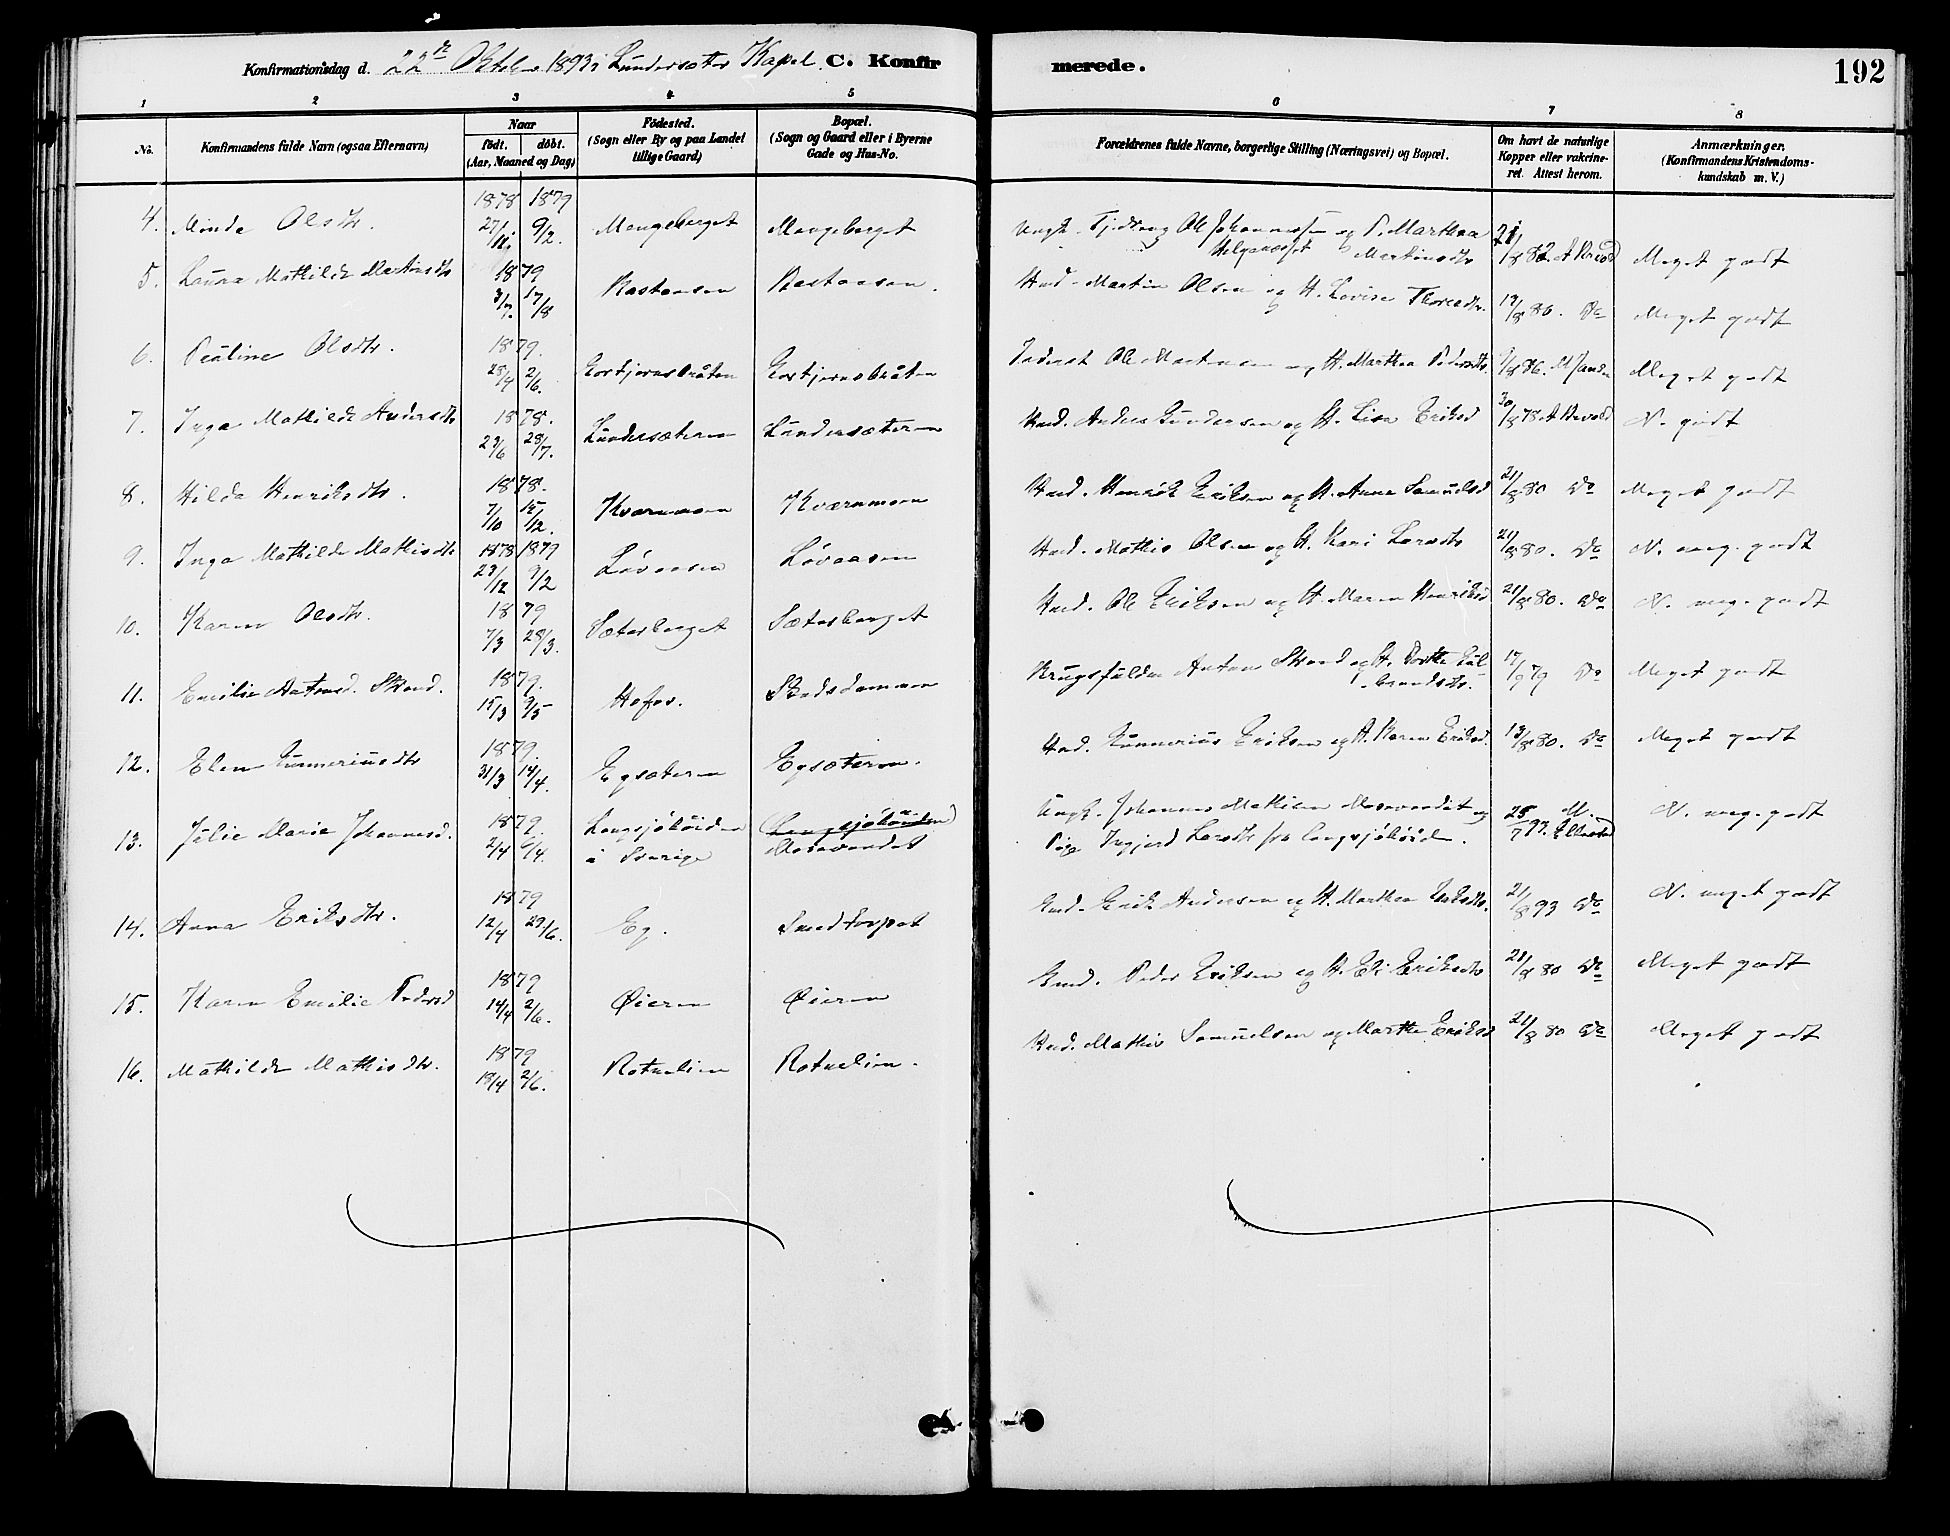 Konfirmationsdag d. 22de Oktober 1893 i Lundersæter Kapel C. Konfirmerede. 192
1 2 3 4 5 6 7 8
No. Konfirmandens fulde Navn (ogsaa Efternavn) Naar født. døbt. (Aar, Maaned og Dag) Fødested. (Sogn eller By og paa Landet tillige Gaard) Bopæl. (Sogn og Gaard eller i Byerne Gade og Hus-No. Forældrenes fulde Navne, borgerlige Stilling (Næringsvei) og Bopæl. Om havt de naturlige Kopper eller vakcineret. Attest herom. Anmærkninger. (Konfirmandens Kristendomskundskab m. V.)
4. Minda Olsdtr. 1878 27/11. 1879 9/2. Mangeberget Mangeberget Ungk. Ole Johannessen Helgenæsset og P. Marthea Martinsdtr 21/8 82 Meget godt
5. Laura Mathilde Martinsdtr 1879 3/7. 17/8 Rastaasen Rastaasen. Hmd. Martin Olsen og H. Lovise 19/8 80. Do Meget godt
6. Pauline Olsdtr. 1879. 28/4 2/6. Ole Martinsen og H. Marthea Pedersdtr. 9/8 86. Meget godt
7. Inga Mathilde Andersdtr 1878. 29/6 28/7. Lundersæteren Lundersæteren Hmd. Anders Gundersen og H. Lisa Eriksd 30/8 78 N. godt
8. Hilda Henriksdtr. 1878. 7/10 15/12. Kværnmoen Kværnmoen Hmd. Henrik Eriksen og H. Anne Samuelsd 21/8 80 Do Meget godt
9. Inga Mathilde Mathisdtr 1878 1879 23/12 9/2 Løvaasen Løvaasen Hmd. Mathis Olsen og H. Kari Larsdtr 21/8 80. Do N. meg. godt
10. Karen Olsdtr. 1879 7/3 28/3. Sætesberget Sætesberget Hmd. Ole Eriksen og H. Maren Henriksd 21/8 80. Do N. meg. godt
11. Emilie Antonsd. Strand. 1879. 15/3 3/5 Hofos. Skadsdammen Anton Strand og H. Dorthe Gulbrandsdtr. 17/9 79 Do Meget godt
12. Elen Gunneriusdtr 1879. 31/3 14/4. Egsæteren Egsæteren. Hmd. Gunnerius Eriksen og H. Karen Eriksd. 13/8 80. Do Meget godt
13. Julie Marie Johannesd. 1879. 2/4 6/4. Langsjöhöiden i Sverige (Langsjöhöiden) Masevandet Ungk. Johannes Mathisen Masevandet og Pige Ingjerd Larsdtr fra Langsjöhöid. 25/7 93. N. meg. godt
14. Anna Eriksdtr. 1879 12/4 29/6. Eg. Hmd. Erik Andersen og H. Marthea 21/8 93 Do N. meget godt
15. Karen Emilie Pedersd 1879 14/4 2/6. Øieren Øieren Hmd. Peder Eriksen og H. Eli Eriksdtr 21/8 80 Do Meget godt
16. Mathilde Mathisdtr. 1879 18/4 2/6. Rotnelien Rotnelien. Hmd. Mathis Samuelsen og Marthe Eriksd 21/8 80 Do Meget godt